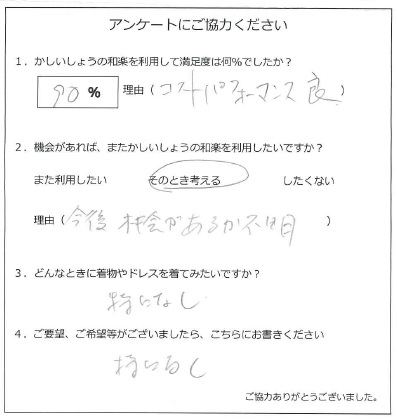 アンケートにご協力ください
1．かしいしょうの和楽を利用して満足度は何%でしたか？
90 % 理由（コストパフォーマンス良）
2．機会があれば、またかしいしょうの和楽を利用したいですか？
また利用したい そのとき考える したくない
理由（今後機会があるか不明）
3．どんなときに着物やドレスを着てみたいですか？
特になし
4．ご要望、ご希望等がございましたら、こちらにお書きください
特になし
ご協力ありがとうございました。